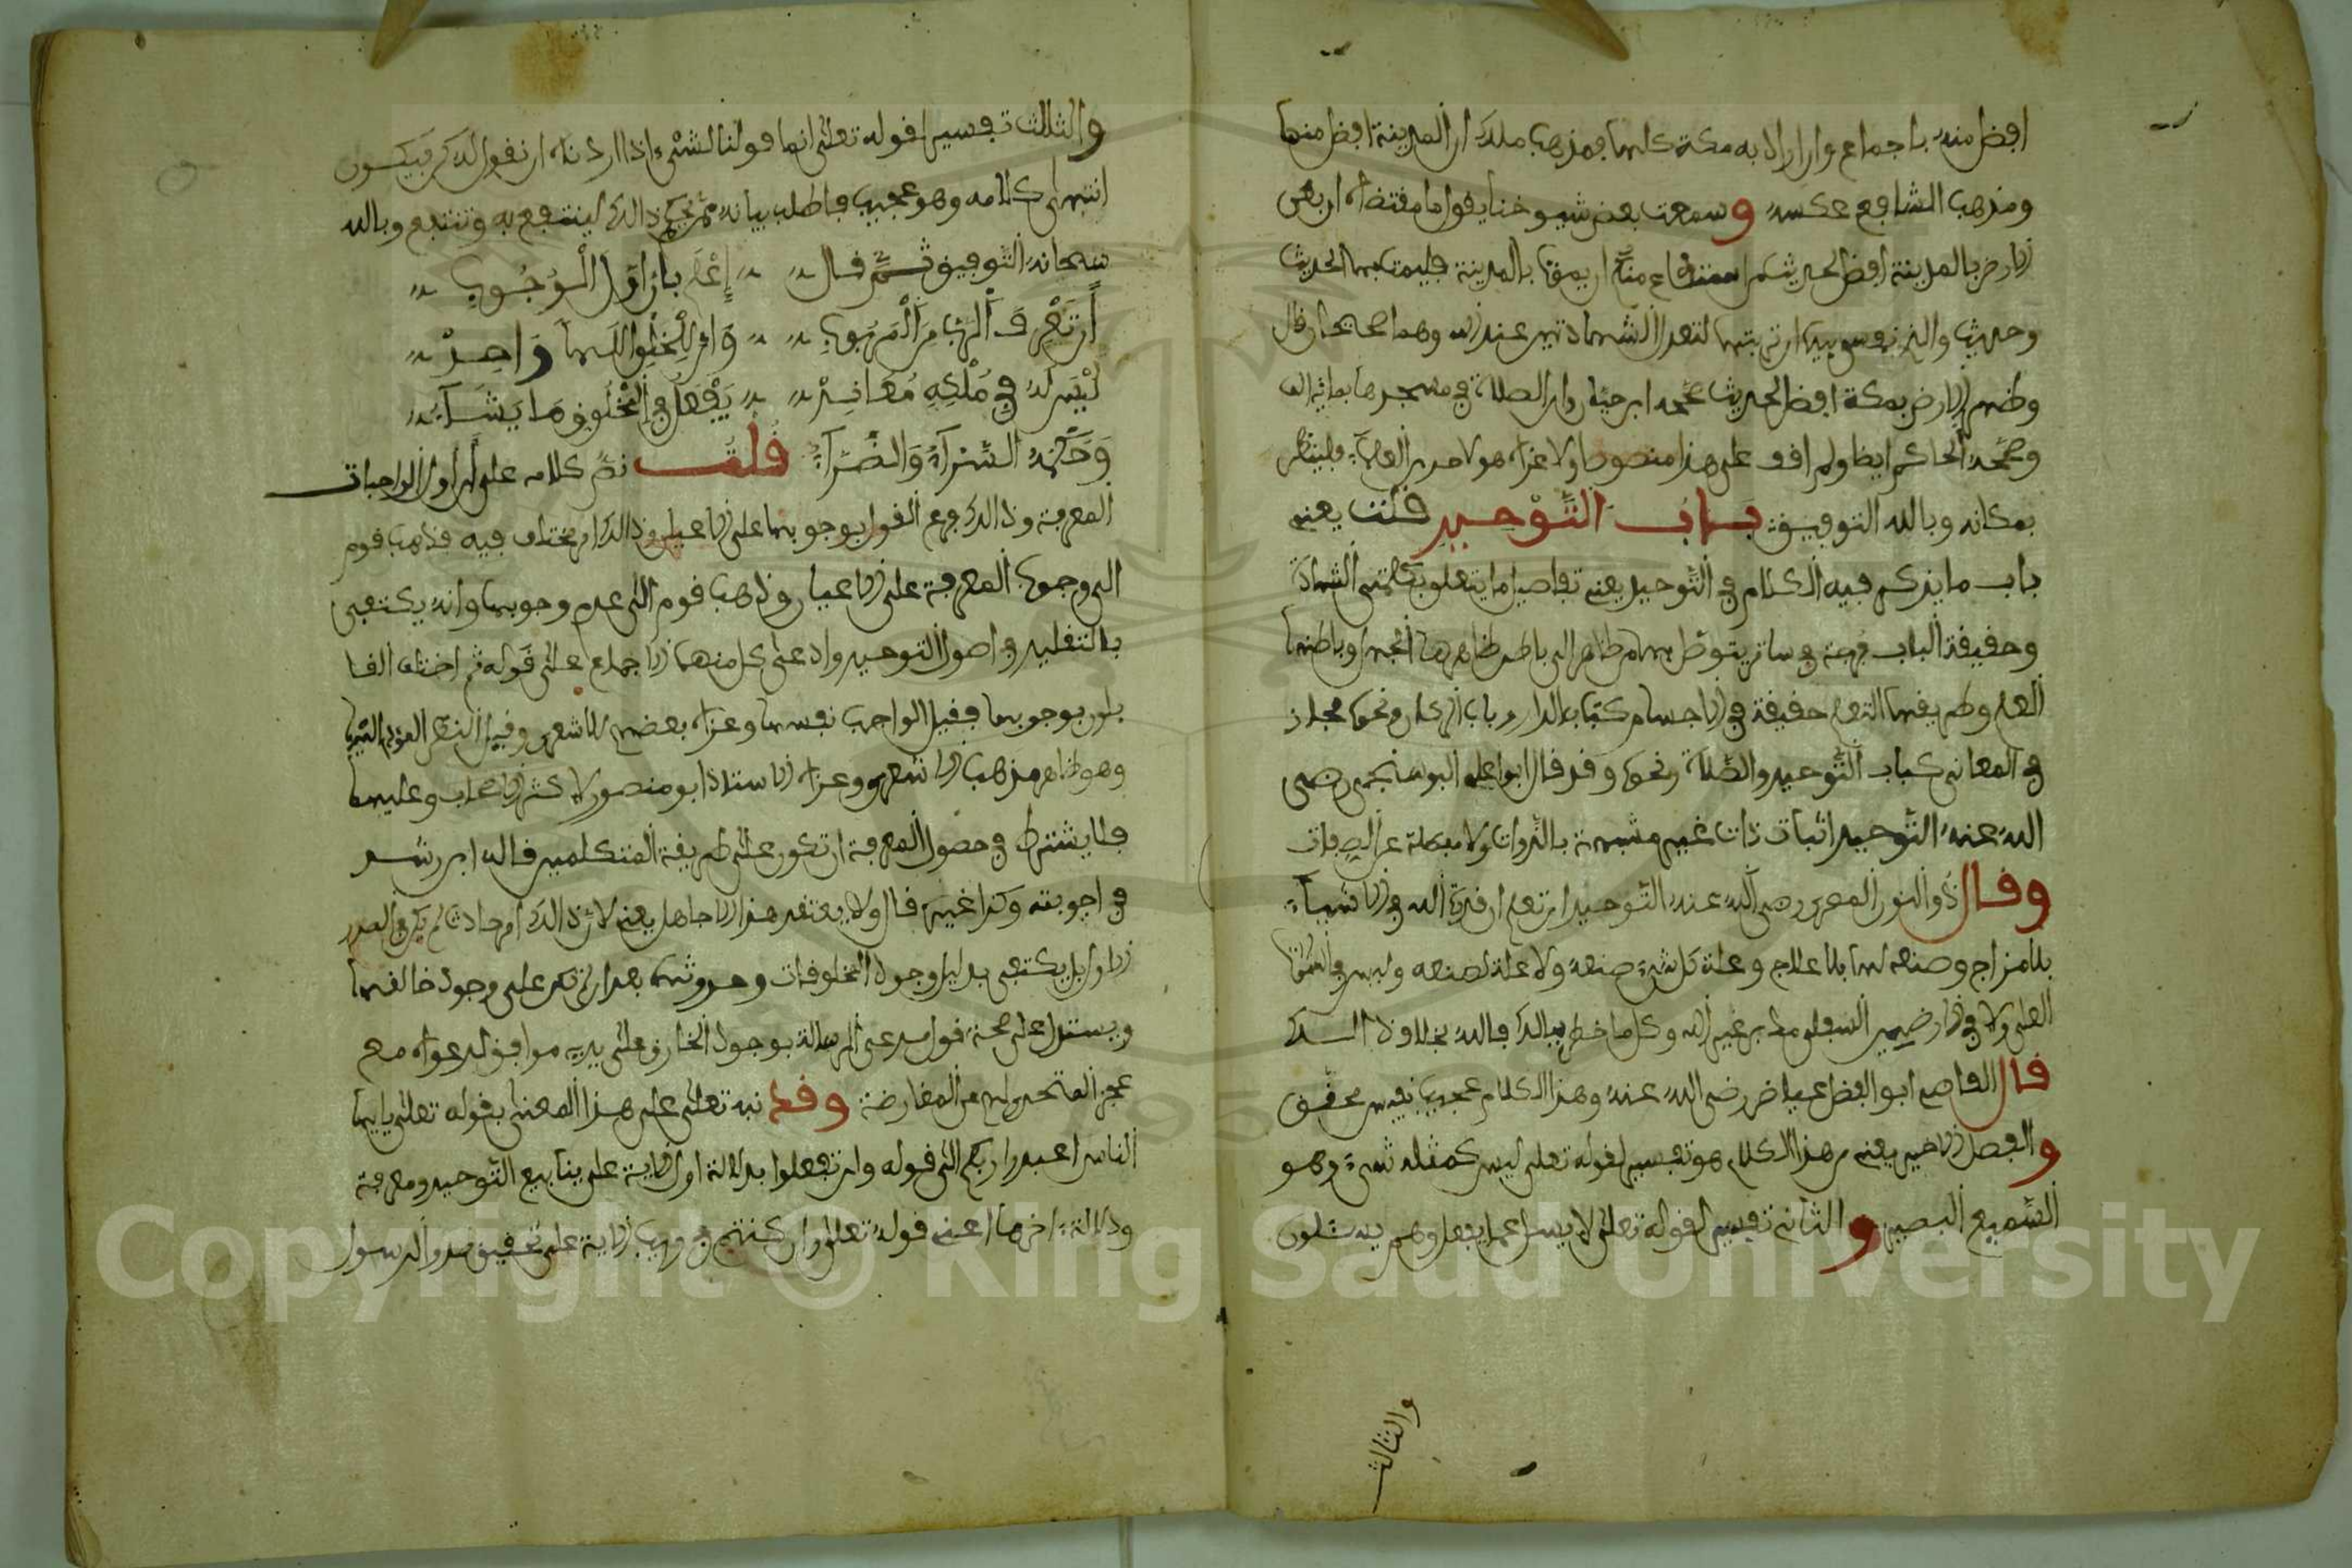 افضل منه باجماع وان اراد به مكة كلها فمذهب ملك ان المدينة افضل منها
ومذهب الشافعي عكسه وسمعت بعض شيوخنا يقول ما مقتضاه ان بعض
الارض بالمدينة افضل لحديث من استطاع منكم ان يموت بالمدينة فليمت بها الحديث
وحديث والذي نفسي بيده ان تربتها لتعدل الشهادتين عند الله وهما صحيحان قال
وظهر الارض بمكة افضل لحديث صححه ابن حبان وان الصلاة في مسجدها بمائة الف
وصححه الحاكم ايضا ولم اقف على هذا منصوصا ولا عزاه هو لاحد من العلماء فلينظر
بمكانه وبالله التوفيق باب التوحيد قلت يعني
باب ما يذكر فيه الكلام في التوحيد يعني تفاصيل ما يتعلق بكلمتي الشهادة
وحقيقة الباب فرجة في ساتر يتوصل بها من ظاهر الى باطن ظاهرها الجهل وباطنها
العلم وطريقها التعلم حقيقة في الاجسام كباب الدار وباب الدكان ونحوه مجاز
في المعاني كباب التوحيد والصلاة ونحوه وقد قال ابو علي البوشنجي رضي
الله عنه التوحيد اثبات ذات غير مشبهة بالذوات ولا معطلة عن الصفات
وقال ذو النون المصري رضي الله عنه التوحيد ان تعلم ان قدرة الله في الاشياء
بلا مزاج وصنعه لها بلا علاج وعلة كل شيء صنعه ولا علة لصنعه وليس في السموات
العلى ولا في الارضين السفلى مدبر غير الله وكل ما خطر ببالك فالله بخلاف ذلك
قال القاضي ابو الفضل عياض رضي الله عنه وهذا الكلام عجيب نفيس محقق
والفصل الاخير يعني من هذا الكلام هو تفسير لقوله تعلى ليس كمثله شيء وهو
السميع البصير والثاني تفسير لقوله تعلى لا يسل عما يفعل وهم يسئلون
والثالث
والثالث تفسير لقوله تعلى انما قولنا لشيء اذا اردنه ان نقول له كن فيكون
انتهى كلامه وهو عجيب فاطلب بيانه ممن يحكم ذالك لينتفع به وتنتفع وبالله
سبحانه التوفيق ثم قال إعلم بأن أول الوجوب
أن تعرف الرب من المربوب وأن للخلق إلها واحد
ليس له في ملكه معاند يفعل في المخلوق ما يشاء
وحكمه السراء والضراء قلت نص كلامه على ان اول الواجبات
المعرفة وذالك فرع القول بوجوبها على الاعيان وذالك امر مختلف فيه فذهب قوم
الى وجوب المعرفة على الاعيان وذهب قوم الى عدم وجوبها وانه يكتفى
بالتقليد في اصول التوحيد وادعى كل منهما الاجماع على قوله ثم اختلف القا
يلون بوجوبها فقيل الواجب نفسها وعزاه بعضهم للاشعري وقيل النظر المؤدي اليها
وهو ظاهر مذهب الاشعري وعزاه الاستاذ ابو منصور لاكثر الاصحاب وعليهما
فلا يشترط في حصول المعرفة ان تكون على طريقة المتكلمين قاله ابن رشد
في اجوبته وكذا غيره قال ولا يعتقد هذا الا جاهل يعني لان ذالك امر حادث لم يكن في الصدر
الاول بل يكتفى بدليل وجود المخلوقات وحدوثها بعد ان لم تكن على وجود خالقها
ويستدل على صحة قول مدعي الرسالة بوجود الخارق على يديه موافق لدعواه مع
عجز المتحدين به عن المعارضة وقد نبه تعلى على هذا المعنى بقوله تعلى يايها
الناس اعبدوا ربكم الى قوله ولن تفعلوا بدلالة اول الاية على ينابيع التوحيد ومعرفة
ودلالة اخرها اعني قوله تعلى وان كنتم في ريب الاية على تحقيق صدق الرسول
Copyright © King Saud University